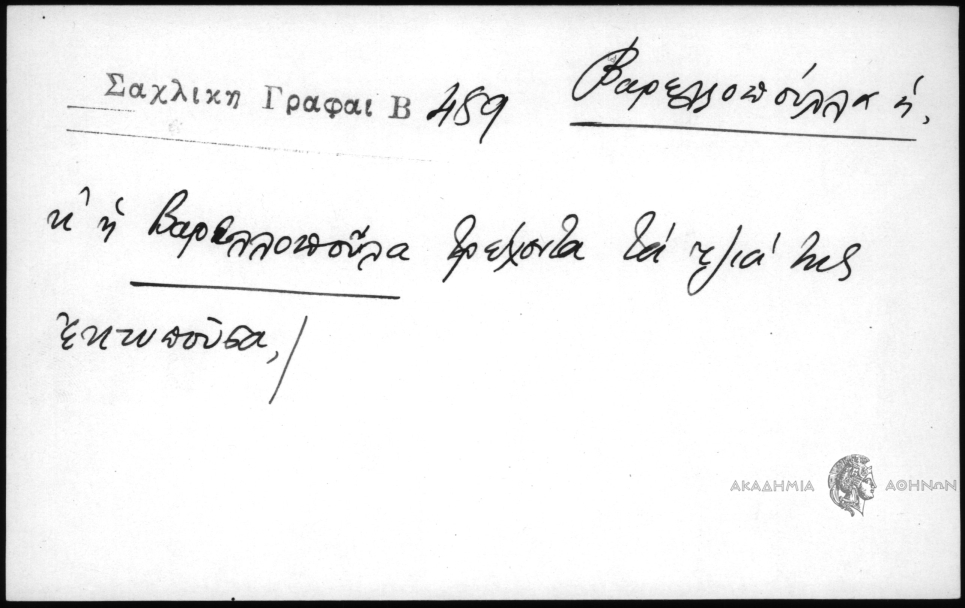 Σαχλικη Γραφαι Β 489
Βαρελλοπούλλα ἡ,
κ' ἡ Βαρελλοπούλα τρέχοντα τά της
ἐκτυποῦσα,/
ΑΚΑΔΗΜΙΑ ΑΘΗΝΩΝ